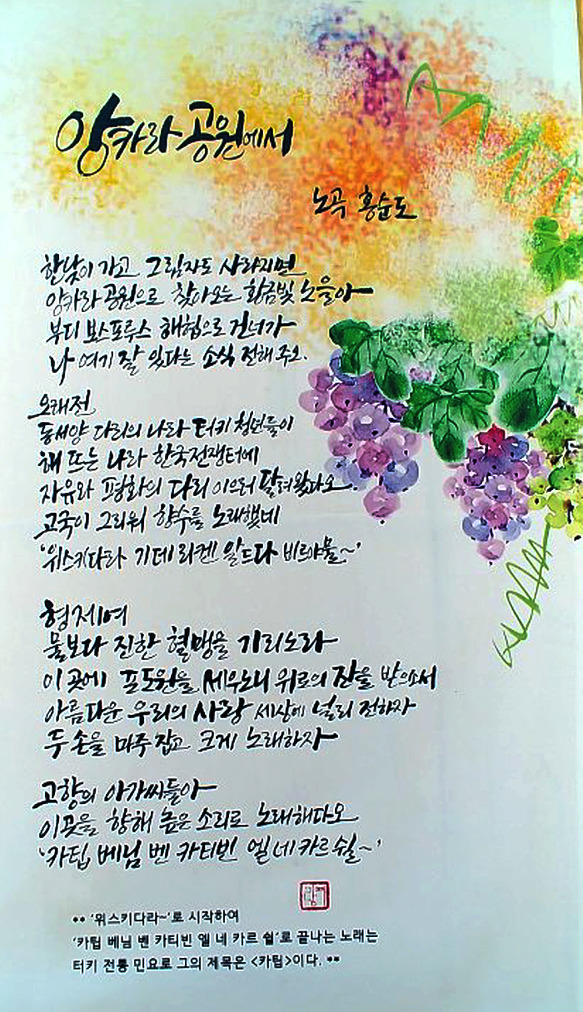 앙카라 공원에서
노곡 홍순도
한낮이 가고 그림자도 사라지면
앙카라 공원으로 찾아오는 황금빛 노을아
부디 보스포루스 해협으로 건너가
나 여기 잘 있다는 소식 전해주오.
오래전
동서양 다리의 나라 터키 청년들이
해 뜨는 나라 한국전쟁터에
자유와 평화의 다리 이으러 달려왔다오
고국이 그리워 향수를 노래했네
'위스키다라 기데리켄 알드다 비르야물~'
형제여
물보다 진한 혈맹을 기리노라
이 곳에 포도원을 세우노니 위로의 잔을 받으소서
아름다운 우리의 사랑 세상에 널리 전하자
두 손을 마주잡고 크게 노래하자
고향의 아가씨들아
이곳을 향해 높은 소리로 노래해다오
'카팁 베님 벤 카티빈 엘 네 카르 쉴~'
** '위스키다라~'로 시작하여
'카팁 베님 벤 카티빈 엘 네 카르 쉴'로 끝나는 노래는
터키 전통 민요로 그의 제목은 <카팁>이다. **